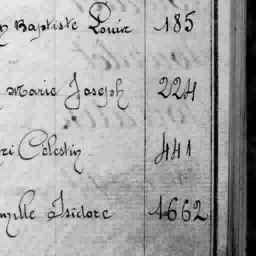 Baptiste Louis 185
Marie Joseph 224
ri Célestin 441
mille Isidore 1662